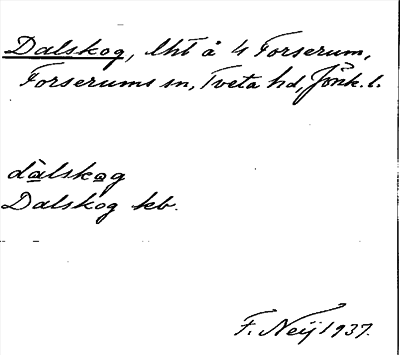 Dalskog, lht å 4 Forserum,
Forserums sn, Tveta hd, Jönk. l.
dàlskog
Dalskog kb.
F. Neij 1937.